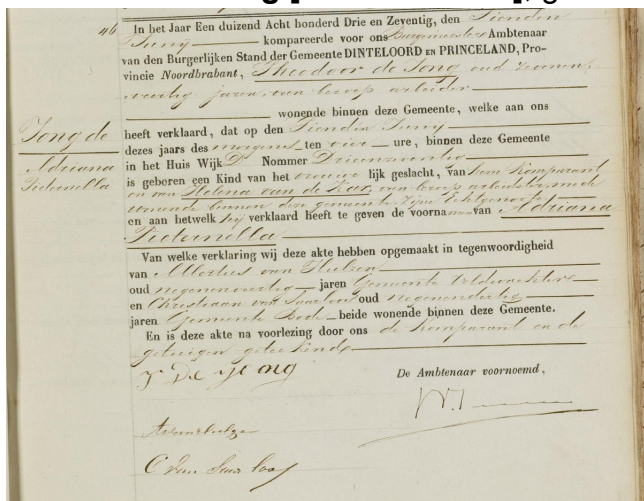 46
In het Jaar Een duizend Acht honderd Drie en Zeventig, den Tienden
Juny kompareerde voor ons Burgemeester Ambtenaar
van den Burgerlijken Stand der Gemeente DINTELOORD EN PRINCELAND, Pro-
vincie Noordbrabant, Theodoor de Jong oud zevenen
veertig jaren, van beroep arbeider
wonende binnen deze Gemeente, welke aan ons
Jong de
heeft verklaard, dat op den Tienden Juny
dezes jaars des morgens ten vier ure, binnen deze Gemeente
Adriana
Pieternella
in het Huis Wijk D Nommer Drieenzeventig
is geboren een Kind van het vrouwe lijk geslacht, van hem Komparant
en van Helena van de Kar, van beroep arbeidster, mede
wonende binnen deze gemeente zijne Echtgenoote
en aan hetwelk hij verklaard heeft te geven de voorna men van Adriana
Pieternella
Van welke verklaring wij deze akte hebben opgemaakt in tegenwoordigheid
van van Hulzen
oud negenenveertig jaren Gemeente Veldwachter
en Christiaan van Saarloos oud negenendertig
jaren Gemeente Bode beide wonende binnen deze Gemeente.
En is deze akte na voorlezing door ons de Komparant en de
getuigen geteekend
T De Jong
De Ambtenaar voornoemd,
C van Saarloos